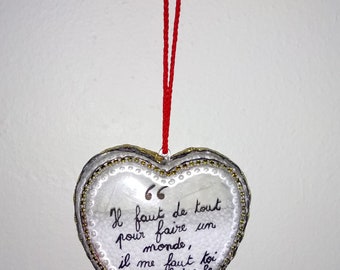 “
Il faut de tout
pour faire un
monde,
il me faut toi